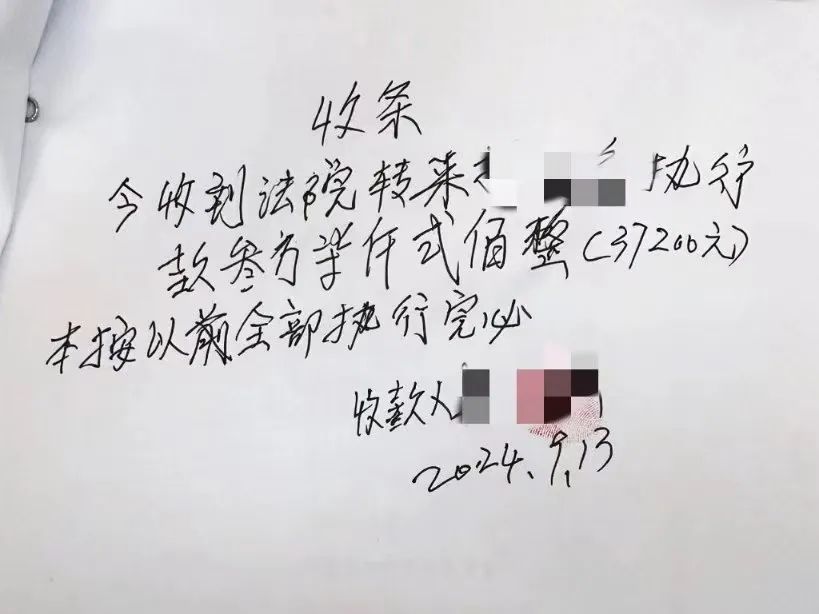 收条
今收到法院转来 执行
款叁万柒仟弍佰整(37200元)
本按以前全部执行完必
收款人
2024.9.13